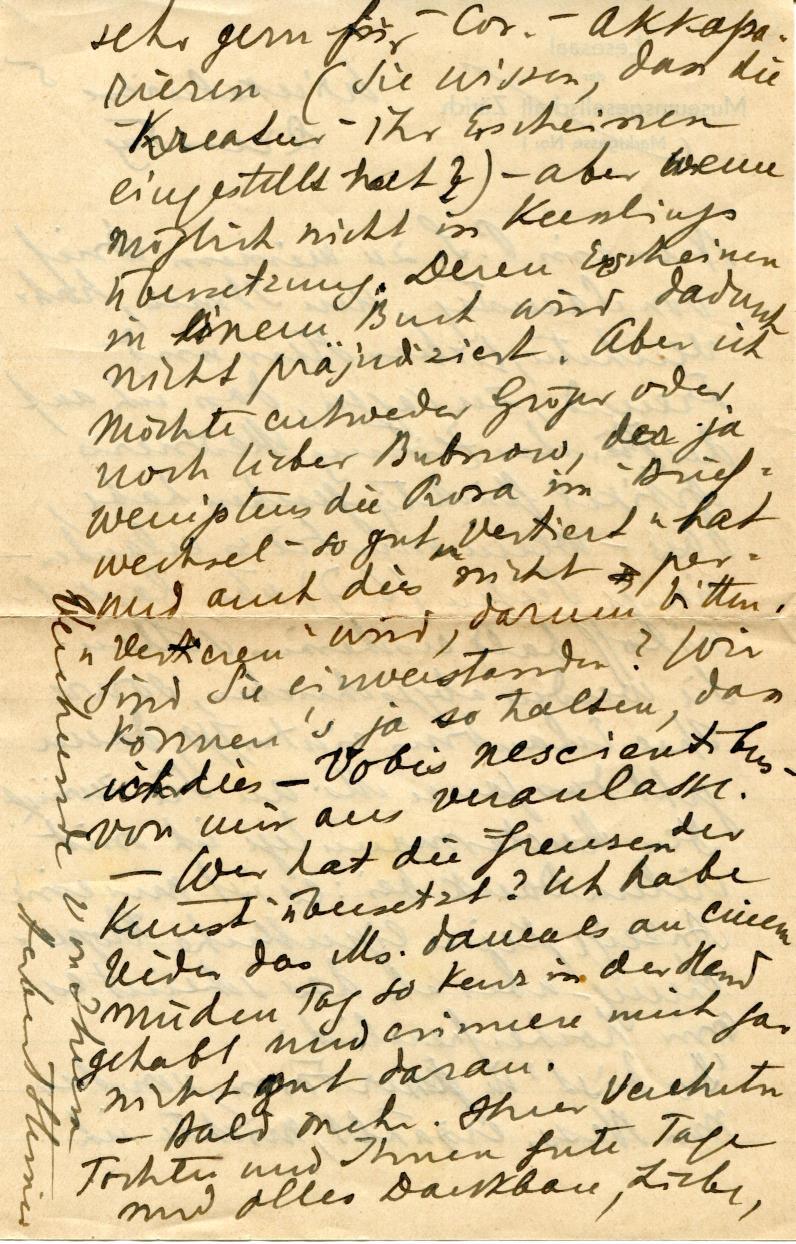 sehr gern für – Cor. – akkapa-
rieren (Sie wissen, dass die
"Kreatur" ihr Erscheinen
eingestellt hat?) – aber wenn
möglich nicht in Keuslings
Übersetzung. Deren Erscheinen
in einem Buch wird dadurch
nicht präjudiziert. Aber ich
möchte entweder Gröger oder
noch lieber Bubnow, der ja
wenigstens die Prosa im "Brief-
wechsel" so gut "vertiert" hat
und auch dies nicht per-
"vertieren" wird, darum bitten.
Sind Sie einverstanden? Wir
können's ja so halten, dass
ich dies – Vobis nescientibus –
von mir aus veranlasse.
– Wer hat die "Grenzen der
Kunst" übersetzt? Ich habe
leider das Ms. damals an einem
müden Tag so kurz in der Hand
gehabt und erinnere mich gar
nicht gut daran.
– Bald mehr. Ihrer Verehrten
Tochter und Ihnen gute Tage
und alles Dankbare, Liebe,
Verehrende von Ihrem
Herbert Steiner